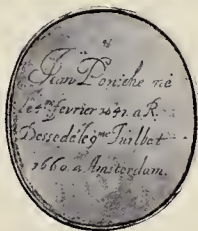 Jean Poniche né
le 4me fevrier 1641. a R.
Decedé le 9me Juillet
1660. a Amsterdam.